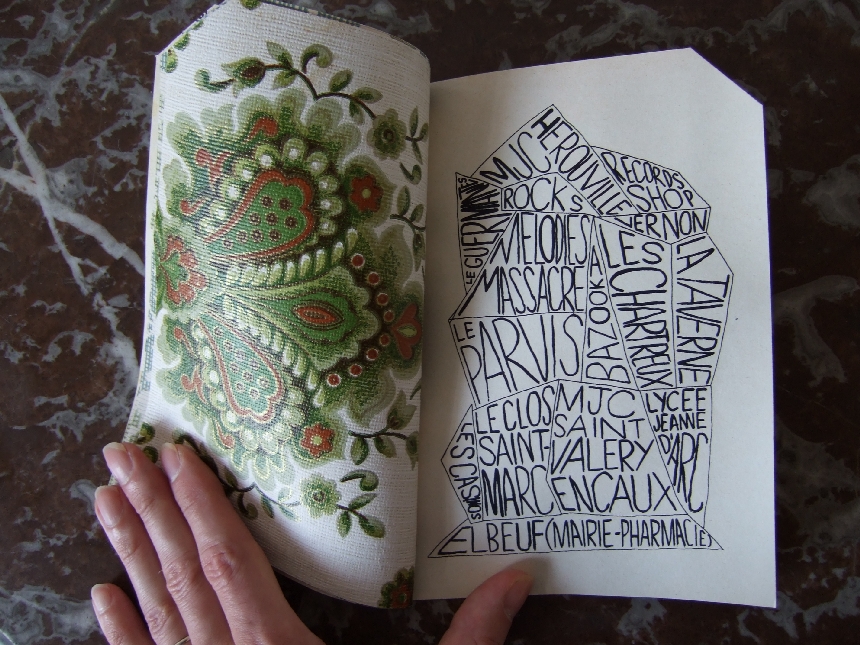 MJC
HEROUVILLE
RECORDS
SHOP
VERNON
ROCKS
LE GUERMANTES
MELODIES
MASSACRE
BAZOOKA
LES
CHARTREUX
LA TAVERNE
LE
PARVIS
LES CASINOS
LE CLOS
SAINT-
MARC
MJC
SAINT
VALERY
EN CAUX
LYCEE
JEANNE
D'ARC
ELBEUF (MAIRIE-PHARMACIE)